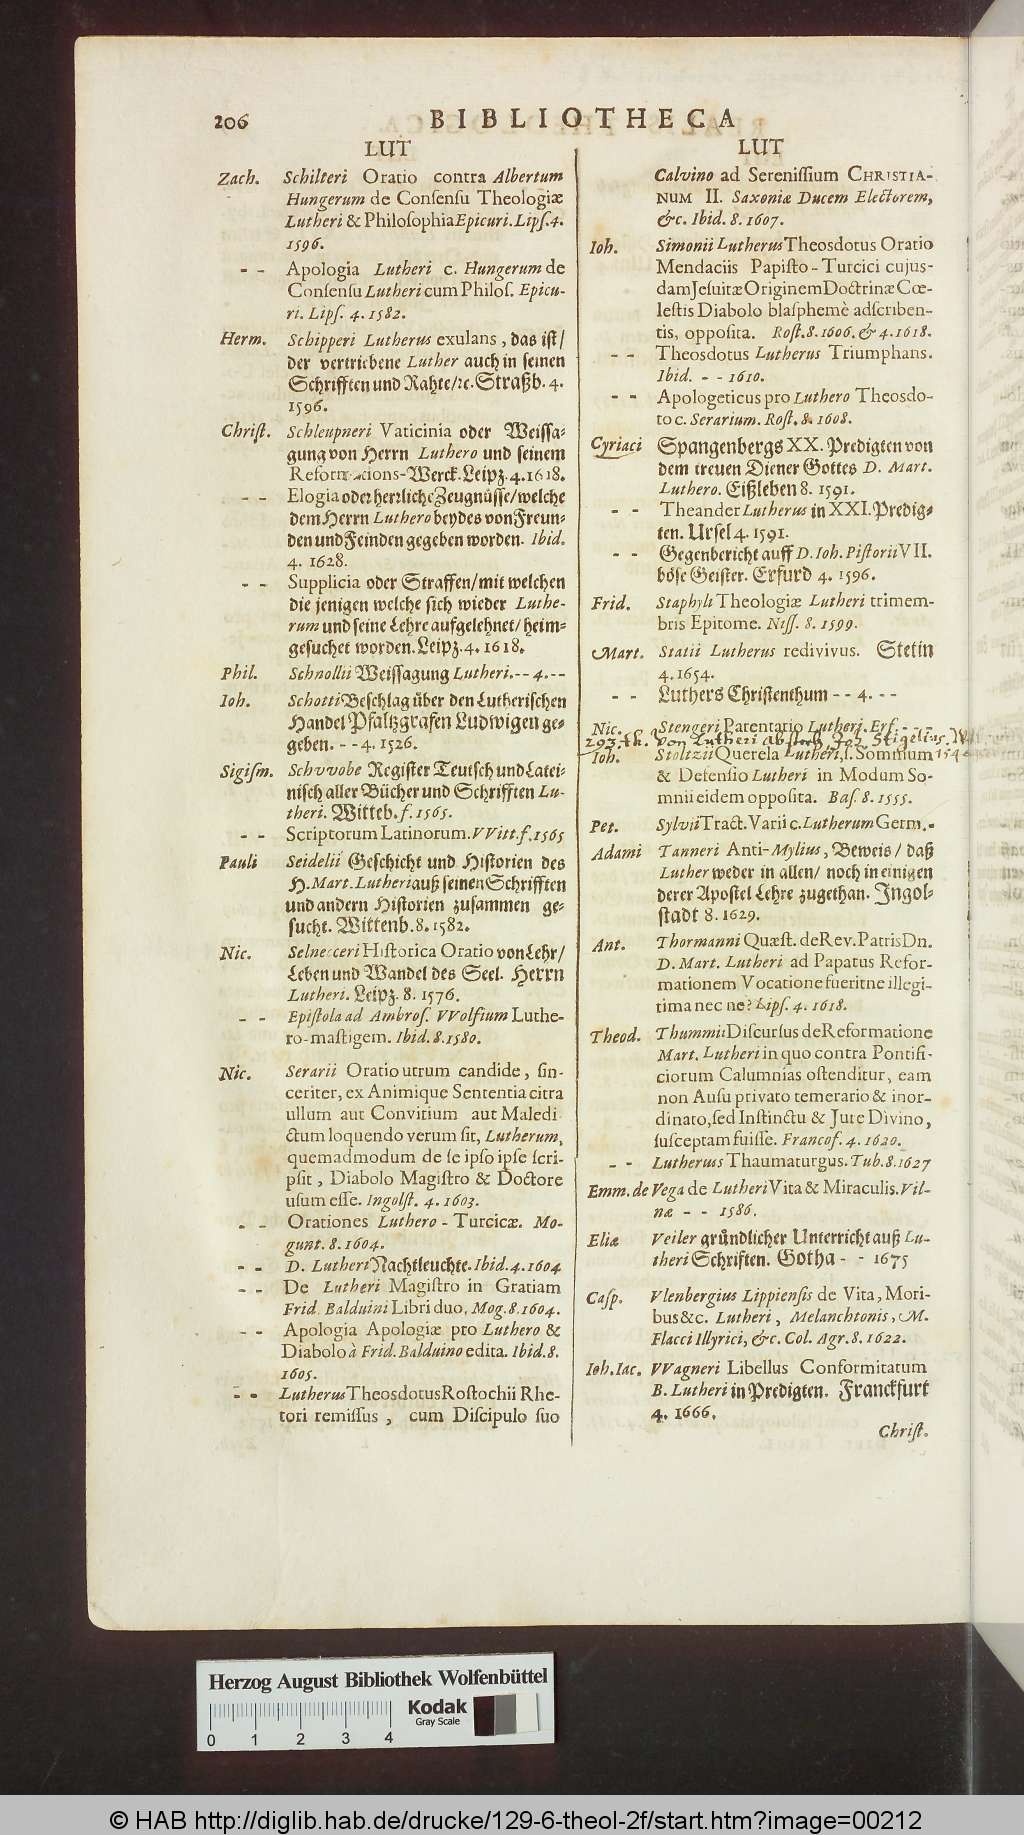 206 BIBLIOTHECA
LUT
Zach. Schilteri Oratio contra Albertum
Hungerum de Consensu Theologiæ
Lutheri & Philosophia Epicuri. Lips. 4.
1596.
- - Apologia Lutheri c. Hungerum de
Consensu Lutheri cum Philos. Epicu-
ri. Lips. 4. 1582.
Herm. Schipperi Lutherus exulans, das ist/
der vertriebene Luther auch in seinen
Schrifften und Nahte/ꝛc. Straßb. 4.
1596.
Christ. Schleupneri Vaticinia oder Weissa-
gung von Herrn Luthero und seinem
Reformations-Werck. Leipz. 4. 1618.
- - Elogia oder herzliche Zeugnüsse/welche
dem Herrn Luthero beydes von Freun-
den und Feinden gegeben worden. Ibid.
4. 1628.
- - Supplicia oder Straffen/mit welchen
die jenigen welche sich wieder Luthe-
rum und seine Lehre aufgelehnet/heim-
gesuchet worden. Leipz. 4. 1618.
Phil. Schnollii Weissagung Lutheri. - - 4. - -
Ioh. Schotti Beschlag über den Lutherischen
Handel Pfaltzgrafen Ludwigen ge-
geben. - - 4. 1526.
Sigism. Schvvobe Register Teutsch und Latei-
nisch aller Bücher und Schrifften Lu-
theri. Witteb. f. 1565.
- - Scriptorum Latinorum. VVitt. f. 1565
Pauli Seidelii Geschicht und Historien des
H. Mart. Lutheri auß seinen Schrifften
und andern Historien zusammen ge-
sucht. Wittenb. 8. 1582.
Nic. Selnecceri Historica Oratio von Lehr/
Leben und Wandel des Seel. Herrn
Lutheri. Leipz. 8. 1576.
- - Epistola ad Ambros. VVolfium Luthe-
ro-mastigem. Ibid. 8. 1580.
Nic. Serarii Oratio utrum candide, sin-
ceriter, ex Animique Sententia citra
ullum aut Convitium aut Maledi-
ctum loquendo verum sit, Lutherum,
quemadmodum de se ipso ipse scri-
psit, Diabolo Magistro & Doctore
usum esse. Ingolst. 4. 1603.
- - Orationes Luthero-Turcicæ. Mo-
gunt. 8. 1604.
- - D. Lutheri Nachtleuchte. Ibid. 4. 1604
- - De Lutheri Magistro in Gratiam
Frid. Balduini Libri duo. Mog. 8. 1604.
- - Apologia Apologiæ pro Luthero &
Diabolo à Frid. Balduino edita. Ibid. 8.
1605.
- - Lutherus Theosdotus Rostochii Rhe-
tori remissus, cum Discipulo suo
LUT
Calvino ad Serenissium CHRISTIA-
NUM II. Saxoniæ Ducem Electorem,
&c. Ibid. 8. 1607.
Ioh. Simonii Lutherus Theosdotus Oratio
Mendaciis Papisto-Turcici cujus-
dam Jesuitæ Originem Doctrinæ Cœ-
lestis Diabolo blasphemè adscriben-
tis, opposita. Rost. 8. 1606. & 4. 1618.
- - Theosdotus Lutherus Triumphans.
Ibid. - - 1610.
- - Apologeticus pro Luthero Theosdo-
to c. Serarium. Rost. 8. 1608.
Cyriaci Spangenbergs XX. Predigten von
dem treuen Diener Gottes D. Mart.
Luthero. Eißleben 8. 1591.
- - Theander Lutherus in XXI. Predig-
ten. Ursel 4. 1591.
- - Gegenbericht auff D. Ioh. Pistorii VII.
böse Geister. Erfurd 4. 1596.
Frid. Staphyli Theologiæ Lutheri trimem-
bris Epitome. Niss. 8. 1599.
Mart. Statii Lutherus redivivus. Stetin
4. 1654.
- - Luthers Christenthum - - 4. - -
Nic. Stengeri Parentatio Lutheri. Erf. - - -
293. th. von Lutheri absterb Joh. Stigelius. Wit 1546
Ioh. Stoltzii Querela Lutheri, s. Somnium
& Defensio Lutheri in Modum So-
mnii eidem opposita. Bas. 8. 1555.
Pet. Sylvii Tract. Varii c. Lutherum Germ. -
Adami Tanneri Anti-Mylius, Beweis/ daß
Luther weder in allen/ noch in einigen
derer Apostel Lehre zugethan. Ingol-
stadt 8. 1629.
Ant. Thormanni Quæst. de Rev. Patris Dn.
D. Mart. Lutheri ad Papatus Refor-
mationem Vocatione fueritne illegi-
tima nec ne? Lips. 4. 1618.
Theod. Thummii Discursus de Reformatione
Mart. Lutheri in quo contra Pontifi-
ciorum Calumnias ostenditur, eam
non Ausu privato temerario & inor-
dinato, sed Instinctu & Jure Divino,
susceptam fuisse. Francof. 4. 1620.
- - Lutherus Thaumaturgus. Tub. 8. 1627
Emm. de Vega de Lutheri Vita & Miraculis. Vil-
næ - - 1586.
Eliæ Veiler gründlicher Unterricht auß Lu-
theri Schriften. Gotha - - 1675
Casp. Vlenbergius Lippiensis de Vita, Mori-
bus &c. Lutheri, Melanchtonis, M.
Flacci Illyrici, &c. Col. Agr. 8. 1622.
Ioh. Iac. VVagneri Libellus Conformitatum
B. Lutheri in Predigten. Franckfurt
4. 1666.
Christ.
Herzog August Bibliothek Wolfenbüttel
Kodak
Gray Scale
0 1 2 3 4
© HAB http://diglib.hab.de/drucke/129-6-theol-2f/start.htm?image=00212